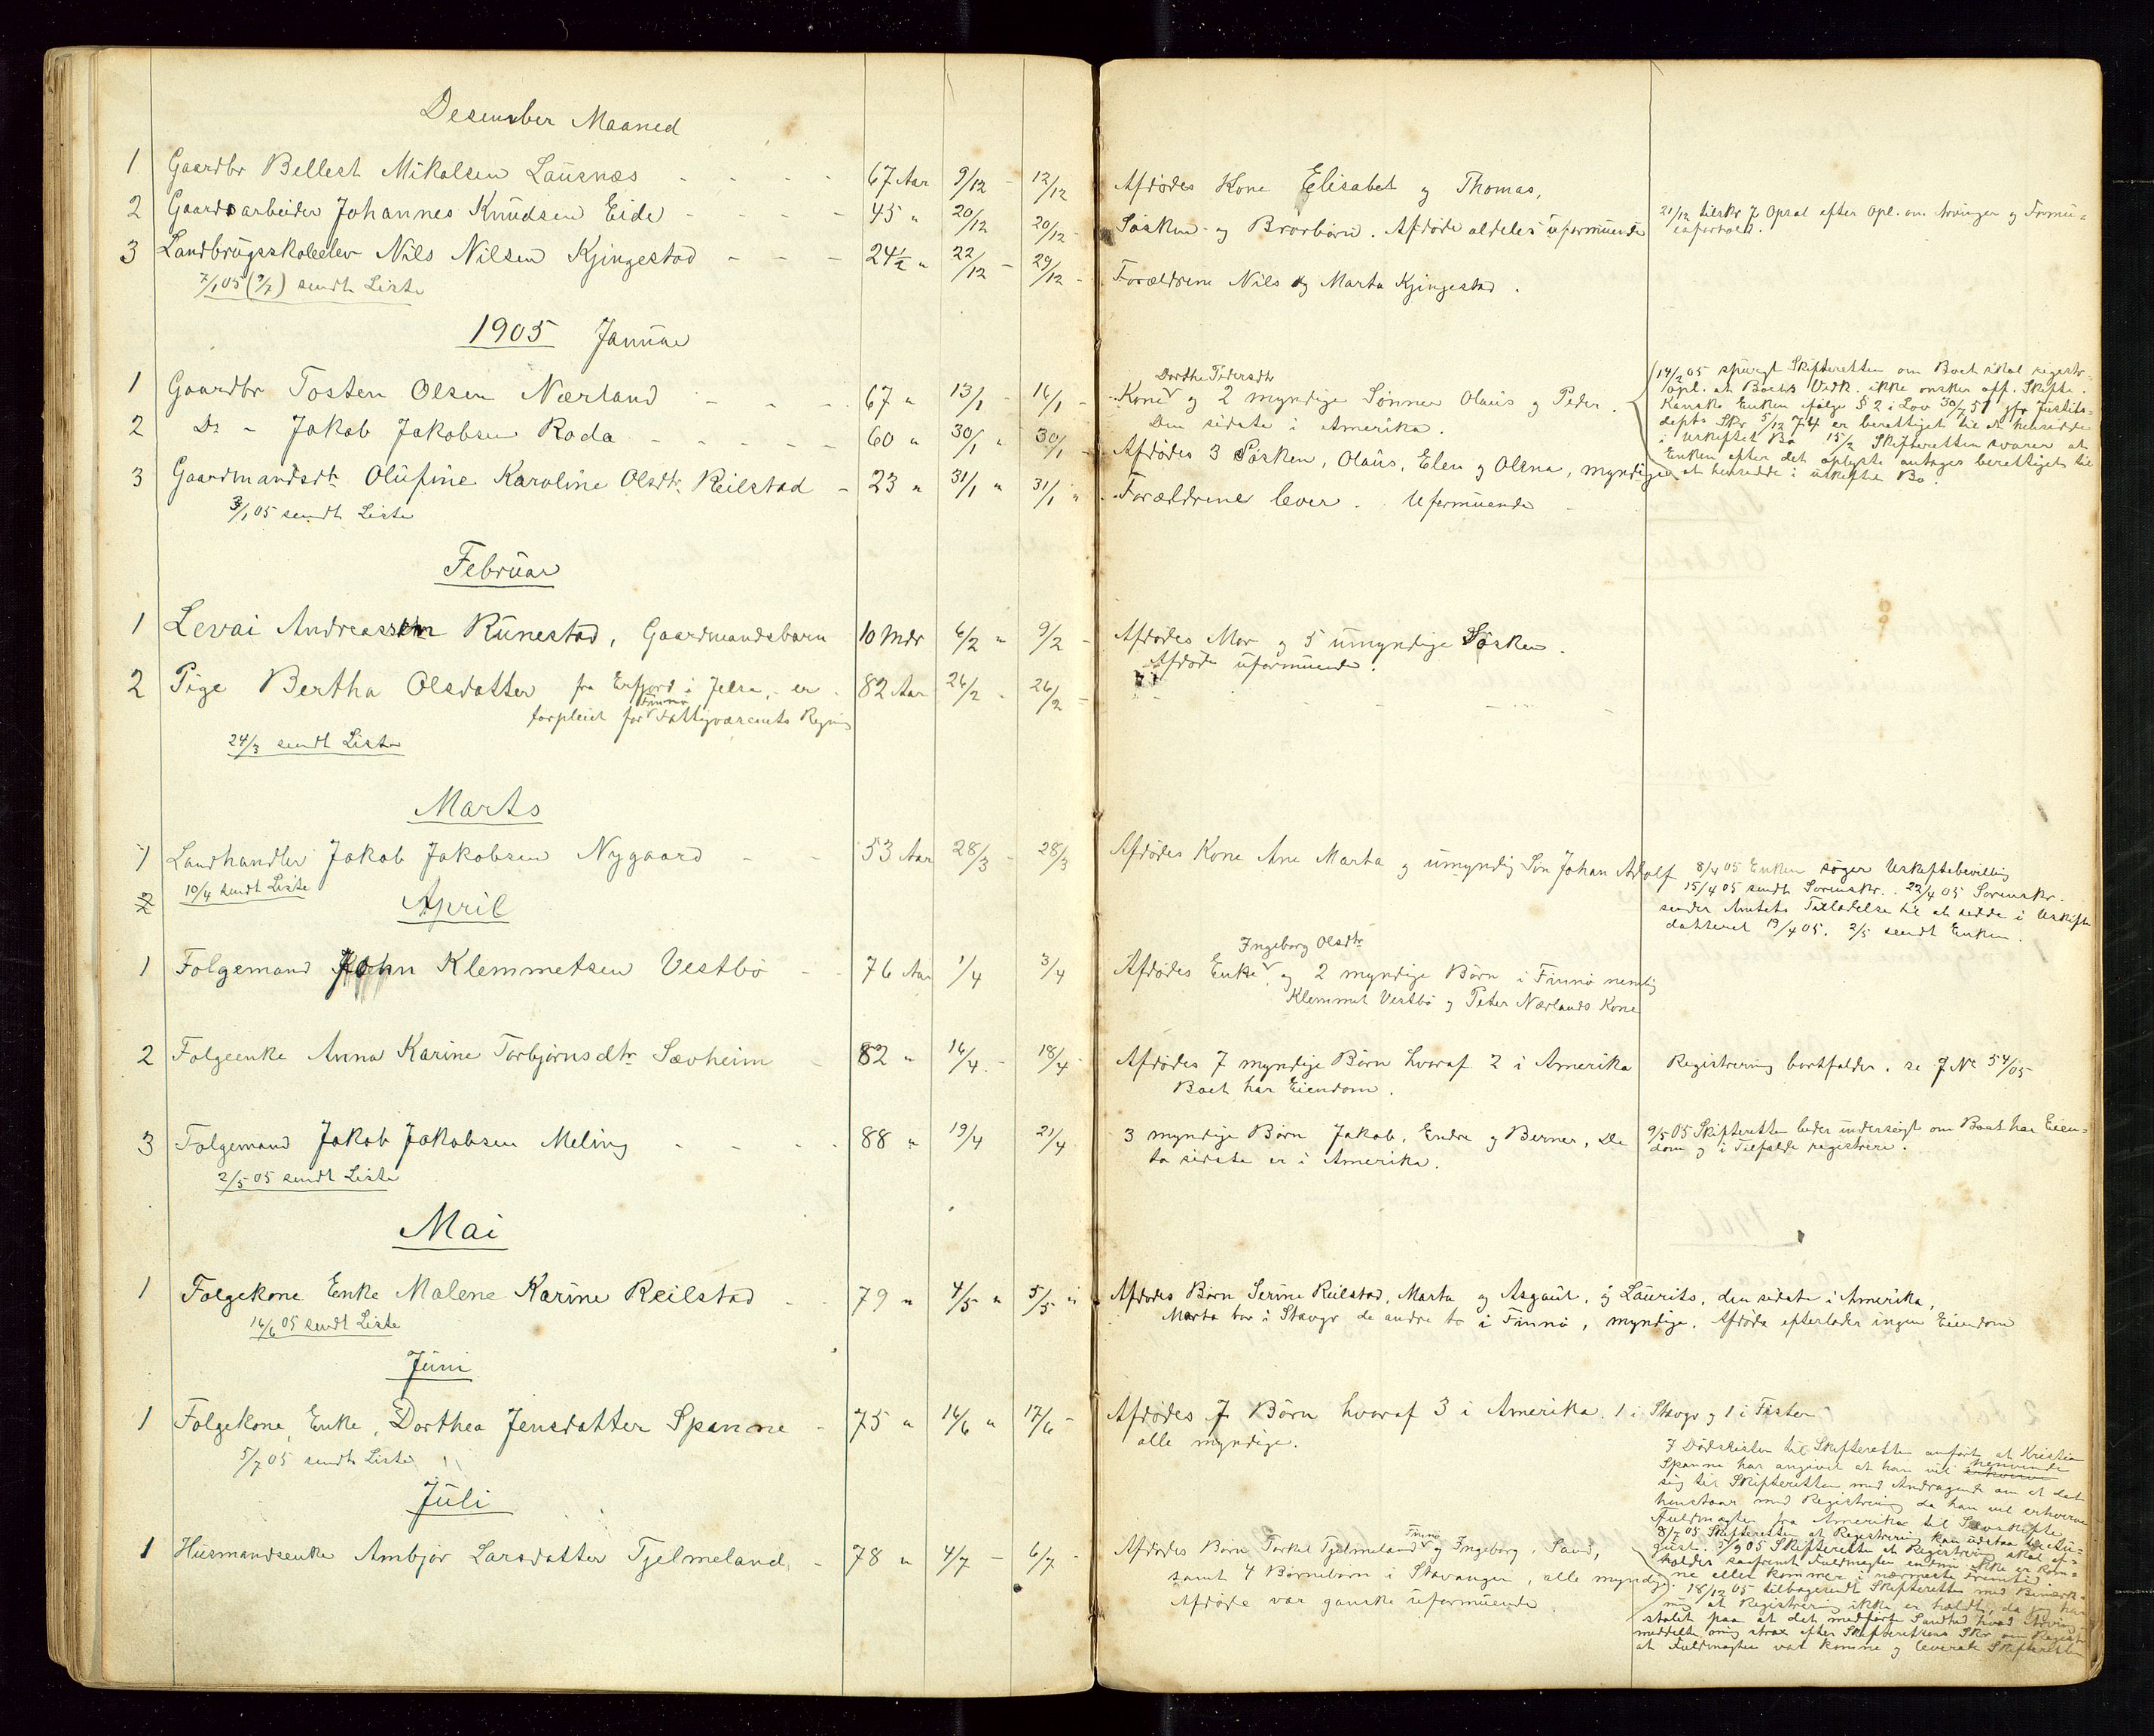 Desember Maaned
1 Gaardbr Bellest Mikalsen Lausnæs - - - - 67 Aar 9/12 - 12/12
2 Gaardsarbeider Johannes Knudsen Eide - - - - 45 " 20/12 20/12 -
3 Landbrugsskoleelev Nils Nilsen Kjingestad - - - 24½ " 22/12 - 29/12 -
7/1 05 (9/1) sendt Liste
1905 Januar
1 Gaardbr Tosten Olsen Nærland - - - 67 " 13/1 - 16/1 -
2 Do - Jakob Jakobsen Roda - - - - - 60 " 30/1 " 30/1 -
3 Gaardmandsdtr Olufine Karoline Olsdtr Reilstad - 23 " 31/1 " 31/1 "
3/1 05 sendt Liste
Februar
1 Levai Andreassen Runestad, Gaardmandsbarn 10 Mdr 6/2 " 9/2 -
2 Pige Bertha Olsdatter fra Erfjord i Jelsa, er - 82 Aar 26/2 - 26/2 -
Finnø
forpleiet for Fattigvæsenets Regning
24/3 sendt Liste
Marts
1 Landhandler Jakob Jakobsen Nygaard - - 53 Aar 28/3 - 28/3
10/4 sendt Liste
2 April
1 Folgemand John Klemmetsen Vestbø - - 76 Aar 1/4 3/4
2 Folgeenke Anna Karine Torbjørnsdtr Sævheim - 82 " 16/4 - 18/4
3 Folgemand Jakob Jakobsen Meling - - - - 88 " 19/4 21/4
2/5 05 sendt Liste
Mai
1 Folgekone Enke Malene Karine Reilstad - 79 " 4/5 " 5/5 "
16/6 05 sendt Liste
Juni
1 Folgekone, Enke, Dorthea Jensdatter Spanne - 75 " 16/6 " 17/6 -
5/7 05 sendt Liste
Juli
1 Husmandsenke Ambjør Larsdatter Tjelmeland - 78 " 4/7 - 6/7 -
Afdødes Kone Elisabet og Thomas,
Søsken- og Brorbørn. Afdøde aldeles uformuende
Forældrene Nils og Marta Kjingestad.
Dorthe Pedersdtr
Kone og 2 myndige Sønner Olaus og Peder.
Den sidste i Amerika.
Afdødes 3 Søsken, Olaus, Elen og Olena, myndige
Forældrene lever. Uformuende
Afdødes Mor og 5 umyndige Søsken.
Afdøde uformuende.
Afdødes Kone Ane Marta og umyndig Søn Johan Adolf
Ingeborg Olsdtr
Afdødes Enke og 2 myndige Børn i Finnø nemlig
Klemmet Vestbø og Peter Nærlands Kone
Afdødes 7 myndige Børn hvoraf 2 i Amerika
Boet har Eiendom.
3 myndige Børn Jakob, Endre og Berner, De
to sidste er i Amerika.
Afdødes Børn Serine Reilstad, Marta og Asgaut, og Laurits, den sidste i Amerika,
Marta bor i Stavgr de andre to i Finnø, myndige. Afdøde efterlader ingen Eiendom
Afdødes 7 Børn hvoraf 3 i Amerika. 1 i Stavgr og 1 i Fister
alle myndige.
Finnø
Afdødes Børn Torkel Tjelmeland og Ingeborg, Sand,
samt 4 Børnebørn i Stavanger, alle myndige.
Afdøde var ganske uformuende
21/12 tilskr J. Opsal efter Opl. om Arvinger og Formu-
esforhold.
14/2 05 spurgt Skifteretten om Boet skal registr-
opl. at Boets Vedk. ikke ønsker off. Skifte.
Kanske Enken ifølge § 2 i Lov 30/7 51 jfr Justits-
depts Skr 5/12 74 er berettiget til at hensidde
i uskiftet Bo 15/2 Skifteretten svarer at
Enken efter det oplyste antages berettiget til
at hensidde i uskiftet Bo.
8/4 05 Enken søger Uskiftebevilling
15/4 05 sendt Sorenskr. 22/4 05 Sorenskr.
sender Amtets Tilladelse til at sidde i Uskifte
datteret 19/4 05. 2/5 sendt Enken.
Registrering bortfalder. se J No 54/05
9/5 05 Skifteretten beder undersøgt om Boet har Eien-
dom og i Tilfælde registrere.
I Dødslisten til Skifteretten anført at Kristian
Spanne har angivet at han vil henvende
sig til Skifteretten med Andragende om at det
henstaar med Registrering da han vil erhverve
Fuldmagter fra Amerika til Samskifte
8/7 05 Skifteretten at Registrering kan udstaa til Au-
gust. 5/9 05 Skifteretten at Registrering skal af-
holdes saafremt Fuldmagten endnu ikke er kom-
ne eller kommer i nærmeste Fremtid.
18/12 05 tilbagesendt Skifteretten med Bemærk-
ning at Registrering ikke er holdt, da jeg har
stolet paa at det medførte Sandhed hvad Arving
meddelte mig strax efter Skifterettens Skr om Registr
at Fuldmagten var komne og leverede Skifteretten